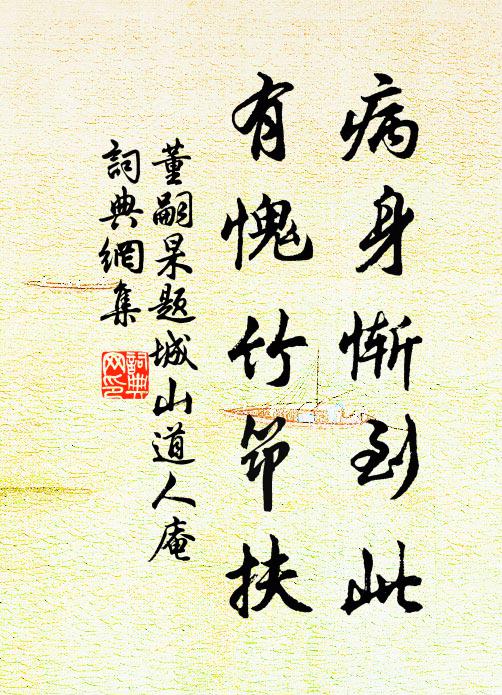 病身慚到此
有愧竹笻扶
董嗣杲題城山道人庵
詞典網集
詞典网印